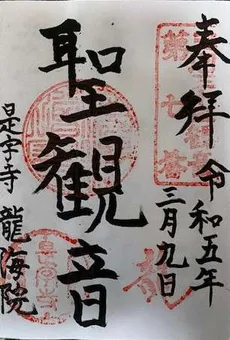 奉拝
令和五年
三月九日
聖観音
是字寺 龍海院